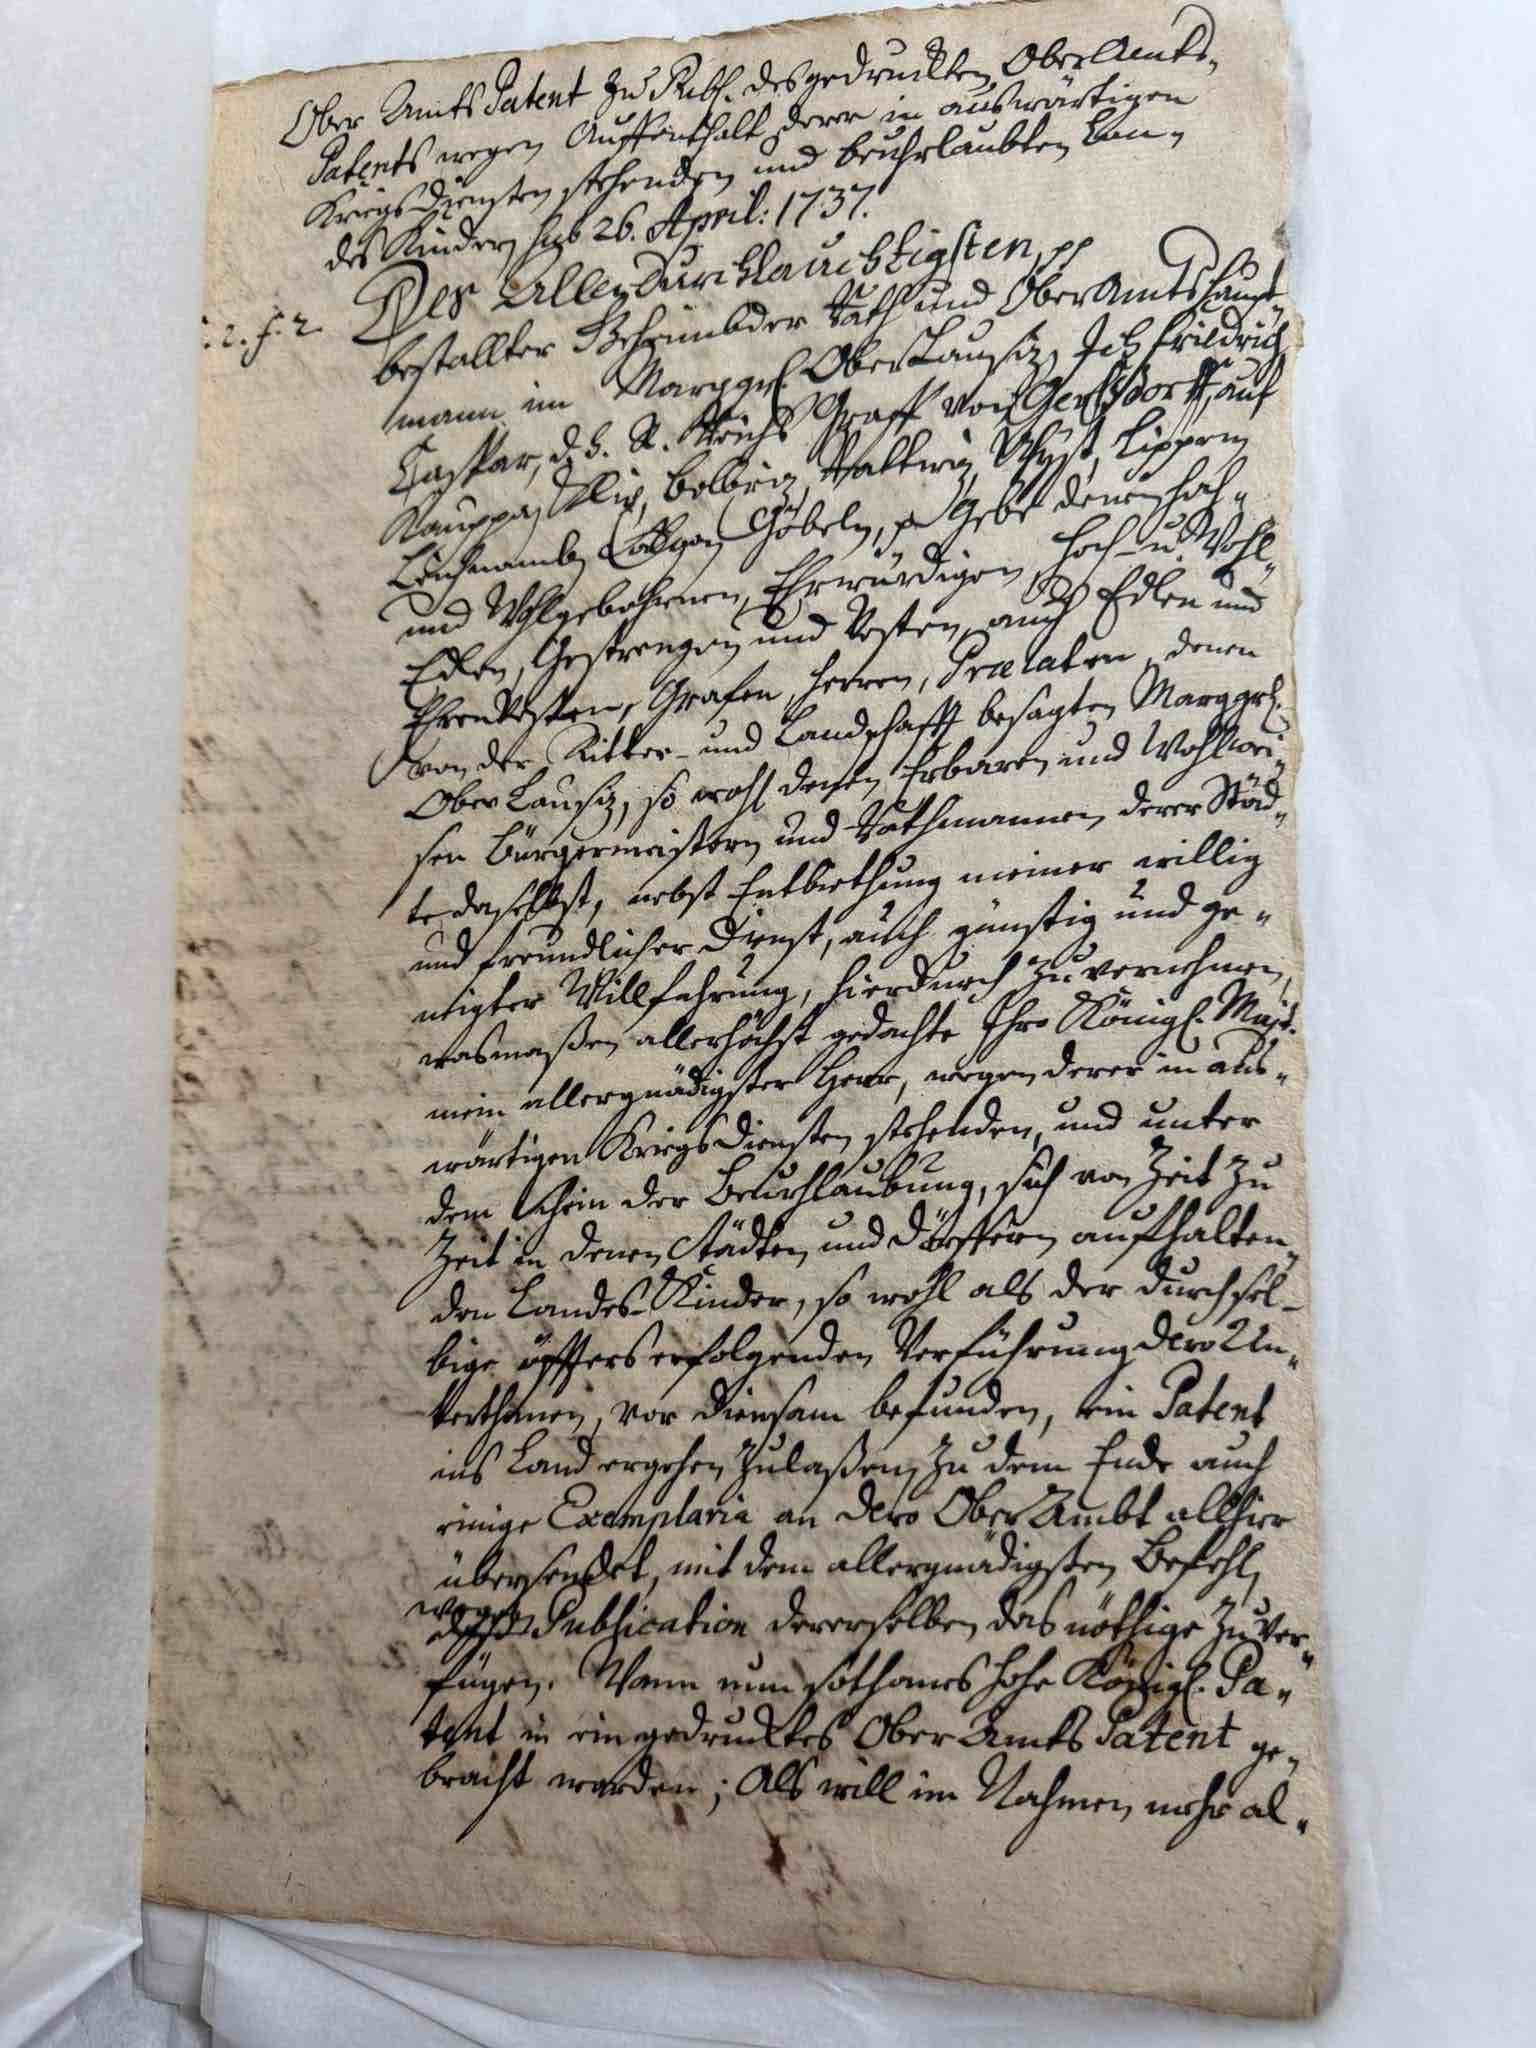 Ober Amts Patent zu Publ. des gedruckten Ober Amts-
Patents wegen Auffenthalt derer in auswärtigen
Kriegs Diensten stehenden und beuhrlaubten Lan-
des Kinder, sub 26. April: 1737.
Des Allerdurchlauchtigsten, pp
bestallter Geheimbder Rath und Ober Amts Haupt-
mann im Marggrf. Ober Lausiz, Ich Friedrich
Caspar, d. H. R. Reichs Graff von Gersdorff, auf
Kauppa, Klix, Golbriz, Uhyst, Lippen,
Göbeln, p Gebe denen Hoch-
und Wohlgebohrnen, Ehrwürdigen, Hoch- u. Wohl-
Edlen, Gestrengen und Vesten, auch Edlen und
Ehrenvesten, Grafen, Herren, Prælaten, denen
von der Ritter- und Landschafft besagten Marggrf.
Ober Lausiz, so wohl denen Erbaren und Wohlwei-
sen Bürgermeistern und Rathmannen derer Städ-
te daselbst, nebst Entbiethung meiner willig
und freundlicher Dienst, auch günstig und ge-
neigter Willfahrung, hierdurch zu vernehmen,
wasmaßen allerhöchst gedachte Ihro Königl. Majt.
mein allergnädigster Herr, wegen derer in aus-
wärtigen Kriegs Diensten stehenden, und unter
dem Schein der Beurhlaubung, sich von Zeit zu
Zeit in denen Städten und Dörffern aufhalten-
den Landes-Kinder, so wohl als der durch sel-
bige öffters erfolgenden Verführung dero Un-
terthanen, vor diensam befunden, ein Patent
ins Land ergehen zulaßen, zu dem Ende auch
einige Exemplaria an dero Ober Ambt allhier
übersendet, mit dem allergnädigsten Befehl,
wegen Publication dererselben das nöthige zu ver-
fügen. Wann nun sothanes hohe Königl. Pa-
tent in ein gedrucktes Ober Amts Patent ge-
bracht worden; Als will im Nahmen mehr al-